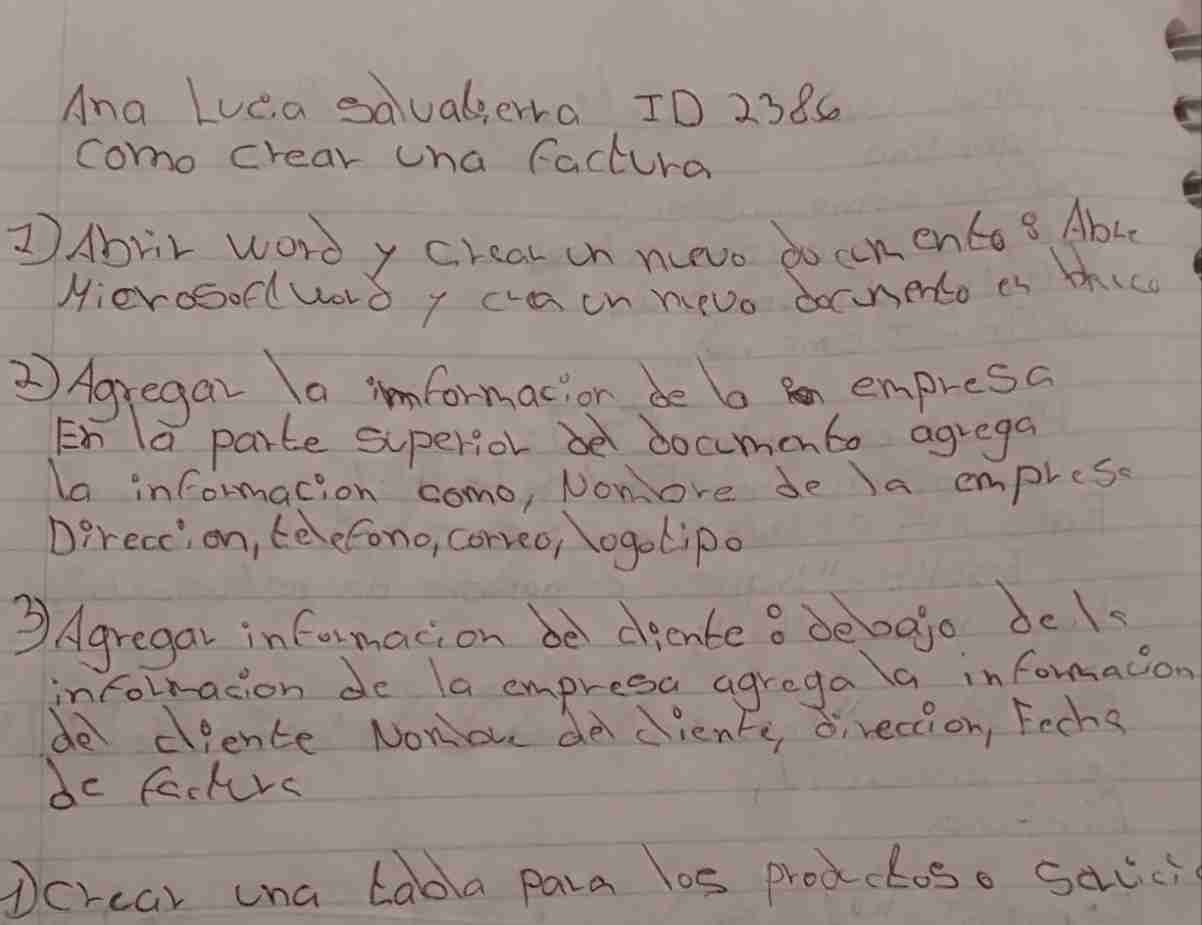 Ana Lucia Salvatierra ID 2386
Como crear una factura
1) Abrir Word y crear un nuevo documento: Abre
Microsoft Word y crea un nuevo documento en blanco
2) Agregar la imformacion de la empresa
En la parte superior del documento agrega
la informacion como, Nombre de la empresa
Direccion, telefono, correo, logotipo
3) Agregar informacion del cliente: debajo de la
informacion de la empresa agrega la informacion
del cliente Nombre del cliente, direccion, Fecha
de factura
1) Crear una tabla para los productos o servicio